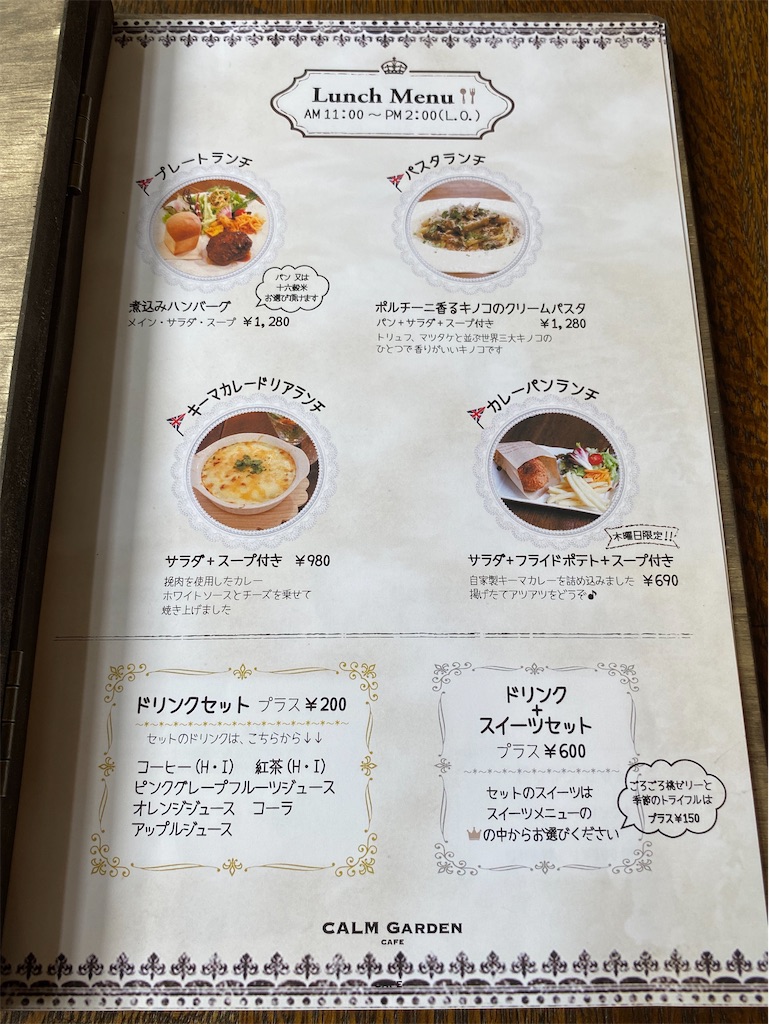 Lunch Menu
AM 11:00 〜 PM 2:00(L.O.)
プレートランチ
パン 又は
十六穀米
お選び頂けます
煮込みハンバーグ
メイン・サラダ・スープ ¥1,280
パスタランチ
ポルチーニ香るキノコのクリームパスタ
パン+サラダ+スープ付き ¥1,280
トリュフ、マツタケと並ぶ世界三大キノコの
ひとつで香りがいいキノコです
キーマカレードリアランチ
サラダ+スープ付き ¥980
挽肉を使用したカレー
ホワイトソースとチーズを乗せて
焼き上げました
カレーパンランチ
木曜日限定!!
サラダ+フライドポテト+スープ付き
自家製キーマカレーを詰め込みました ¥690
揚げたてアツアツをどうぞ♪
ドリンクセット プラス ¥200
セットのドリンクは、こちらから↓↓
コーヒー(H・I) 紅茶(H・I)
ピンクグレープフルーツジュース
オレンジジュース コーラ
アップルジュース
ドリンク
+
スイーツセット
プラス ¥600
セットのスイーツは
スイーツメニューの
の中からお選びください
ごろごろ桃ゼリーと
季節のトライフルは
プラス¥150
CALM GARDEN
CAFE
CAFE